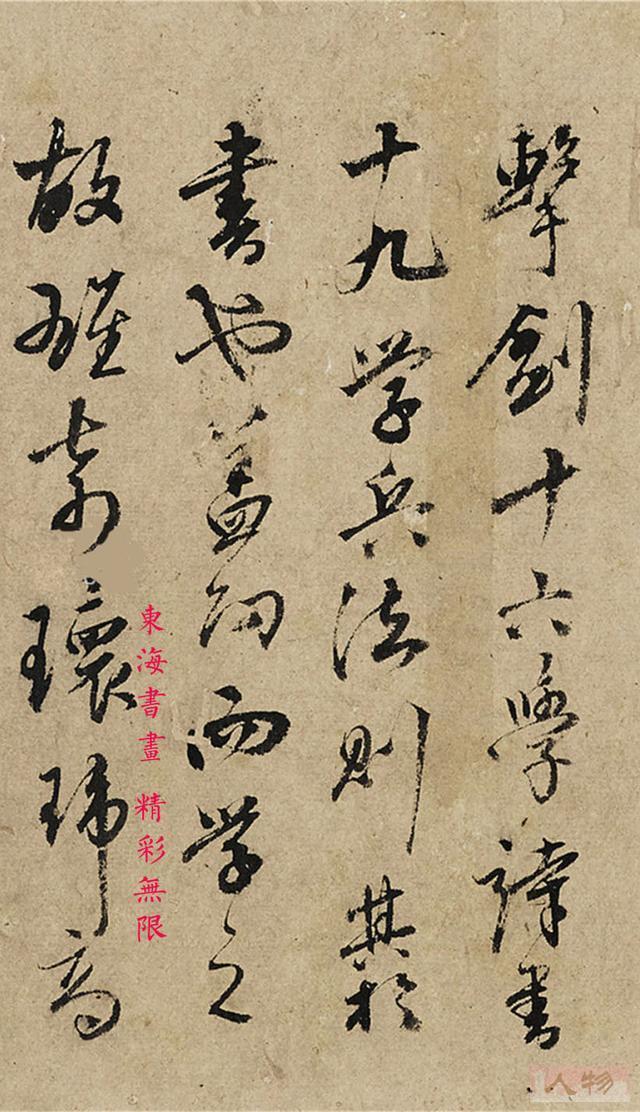 擊劍十六學讀書
十九学兵法則其於
書也蓋幼而学之
故雖奇瓌瑋高
東海書畫 精彩無限
人物